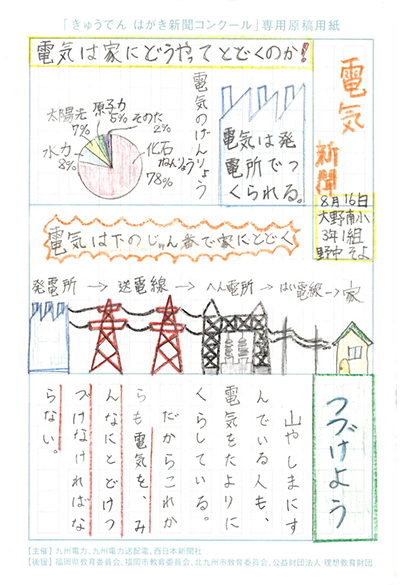 「きゅうでん はがき新聞コンクール」専用原稿用紙
電気は家にどうやってとどくのか!
電気新聞
8月16日
大野南小
3年1組
野中 そよ
電気は発
電所でつ
くられる。
電気のげんりょう
太陽光
7%
原子力
5%
そのた
2%
水力
8%
化石
ねんりょう
78%
電気は下のじゅん番で家にとどく
発電所→送電線→へん電所→はい電線→家
つづけよう
山やしまにす
んでいる人も、
電気をたよりに
くらしている。
だからこれか
らも電気を、み
んなにとどけつ
づけなければな
らない。
【主催】九州電力、九州電力送配電、西日本新聞社
【後援】福岡県教育委員会、福岡市教育委員会、北九州市教育委員会、公益財団法人 理想教育財団